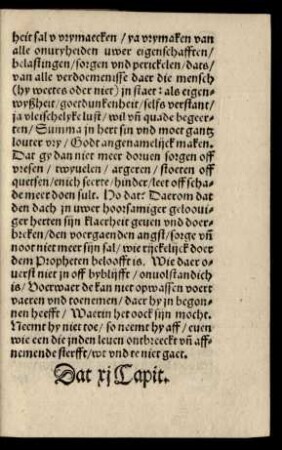 heit sal v vrymaecken / ya vrymaken van
alle onuryheiden uwer eigenschafften /
belastingen / sorgen vnd perickelen / dats /
van alle verdoemenisse daer die mensch
(hy weetes oder niet) jn staet: als eigen-
wyßheit / goetdunkenheit / selfs verstant /
ja vleischelyke lust / wil vñ quade begeer-
ten / Summa jn hert sin vnd moet gantz
louter vry / Godt angenamelijck maken.
Dat gy dan niet meer doruen sorgen off
vresen / twyuelen / argeren / stoeten off
quetsen / enich secrte / hinder / leet off scha-
de meer doen sult. Ho dat? Daerom dat
den dach jn uwer hoorsamiger geloouí-
ger herten sijn klaerheit geuen vnd doer-
breken / den voergaenden angst / sorge vñ
noot niet meer sijn sal / wie rijckelijck doer
dem Propheten belooft is. Wie daer o-
uerst niet jn off byblijfft / onuolstandich
is / Voerwaer de kan niet opwassen voert
vaeren vnd toenemen / daer hy jn begon-
nen heefft / Waerin het oock sijn mocht.
Neemt hy niet toe / so neemt hy aff / euen
wie een die jnden leuen ontbreeckt vñ aff-
nemende sterfft / tot vnd te niet gaet.
Dat xj Capit.